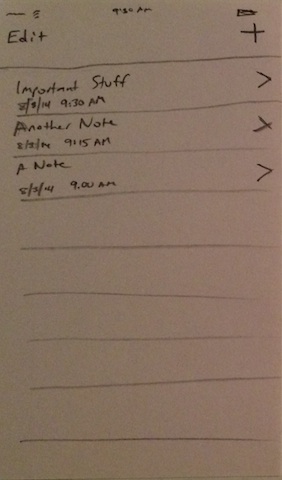 9:30 AM
Edit +
Important Stuff >
8/3/14 9:30 AM
Another Note >
8/3/14 9:15 AM
A Note >
8/3/14 9:00 AM